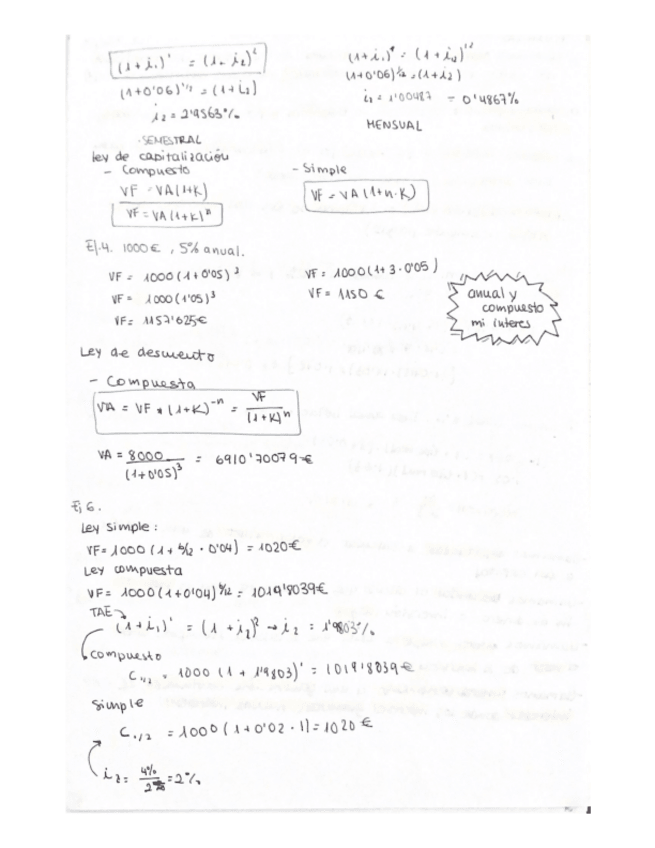 (1+i₁)¹ = (1+i₂)²
(1+0'06)^1/2 = (1+i₂)
i₂ = 2'9563%
SEMESTRAL
(1+i₁)¹ = (1+i₁₂)¹²
(1+0'06)^1/12 = (1+i₁₂)
= 1'00487 = 0'4867%
MENSUAL
ley de capitalización
- Compuesto
VF = VA(1+K)
VF = VA(1+K)ⁿ
- Simple
VF = VA(1+n·K)
Ej.4. 1000€, 5% anual.
VF = 1000(1+0'05)³
VF = 1000(1'05)³
VF = 1157'625€
VF = 1000(1+3·0'05)
VF = 1150 €
anual y
compuesto
mi interes
Ley de descuento
- Compuesta
VA = VF * (1+K)⁻ⁿ = VF/(1+K)ⁿ
VA = 8000/(1+0'05)³ = 6910'70079€
Ej 6.
Ley simple:
VF = 1000(1+6/12·0'04) = 1020€
Ley compuesta
VF = 1000(1+0'04)^6/12 = 1019'8039€
TAE
(1+i₁)¹ = (1+i₂)² → i₂ = 1'9803%
compuesto
C₁/₂ = 1000(1+1'9803)¹ = 1019'8039€
Simple
C₁/₂ = 1000(1+0'02·1) = 1020€
i₂ = 4%/2 = 2%